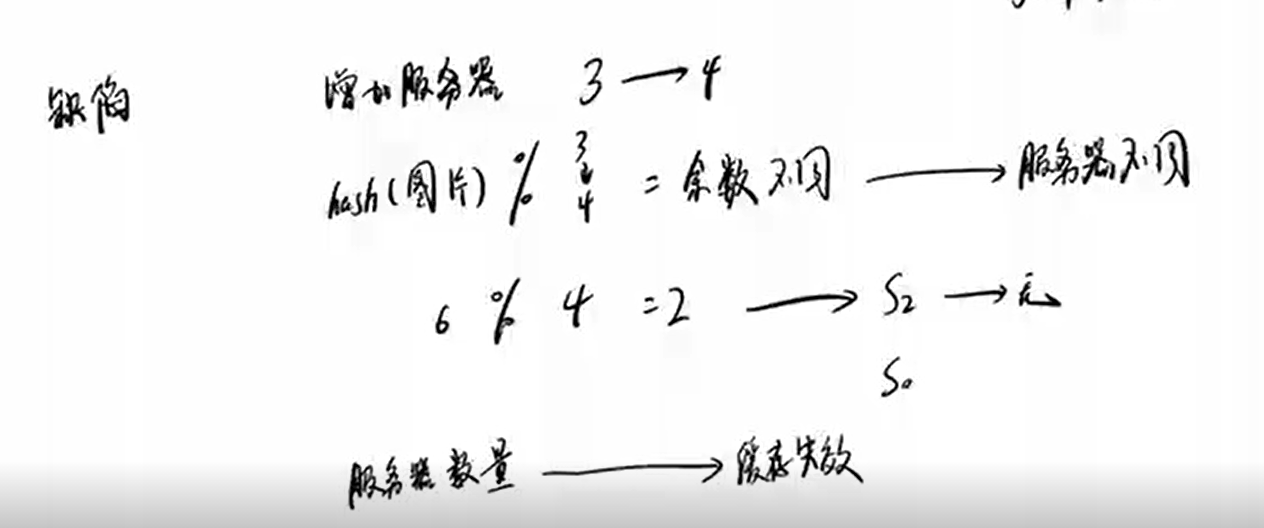 缺陷 增加服务器 3 → 4
hash(图片) % 3 ↓ 4 = 余数不同 → 服务器不同
6 % 4 = 2 → S2 → 无
S0
服务器数量 → 缓存失效